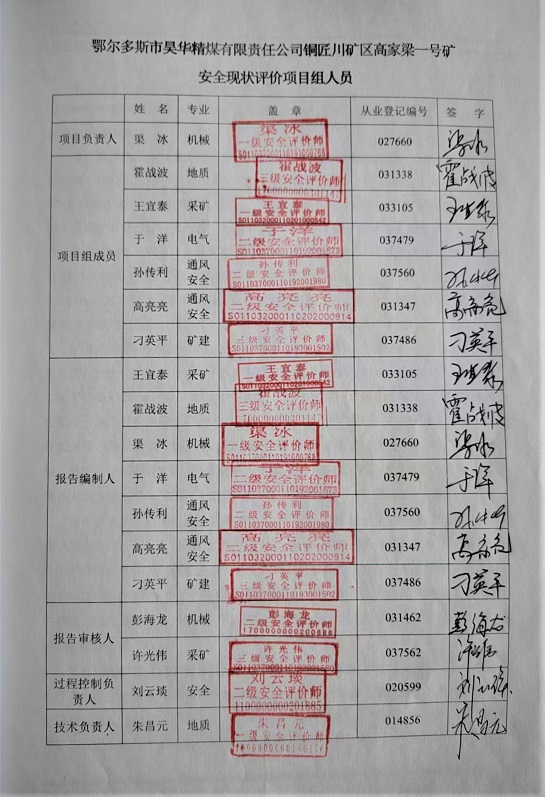 鄂尔多斯市昊华精煤有限责任公司铜匠川矿区高家梁一号矿
安全现状评价项目组人员
姓 名 专业 盖 章 从业登记编号 签 字
项目负责人 渠 冰 机械 渠 冰 一级安全评价师 027660 渠冰
项目组成员
霍战波 地质 霍战波 三级安全评价师 031338 霍战波
王宜泰 采矿 王宜泰 一级安全评价师 S011032000110201000542 033105 王宜泰
于 洋 电气 于洋 二级安全评价师 S011037000110192001673 037479 于洋
孙传利 通风安全 孙传利 二级安全评价师 S011037000110192001980 037560 孙传利
高亮亮 通风安全 高亮亮 二级安全评价师 S011032000110202000914 031347 高亮亮
刁英平 矿建 刁英平 三级安全评价师 S011037000110193001502 037486 刁英平
王宜泰 采矿 王宜泰 一级安全评价师 S011032000110201000542 033105 王宜泰
霍战波 地质 霍战波 三级安全评价师 031338 霍战波
报告编制人
渠 冰 机械 渠 冰 一级安全评价师 027660 渠冰
于 洋 电气 于洋 二级安全评价师 S011037000110192001673 037479 于洋
孙传利 通风安全 孙传利 二级安全评价师 S011037000110192001980 037560 孙传利
高亮亮 通风安全 高亮亮 二级安全评价师 S011032000110202000914 031347 高亮亮
刁英平 矿建 刁英平 三级安全评价师 S011037000110193001502 037486 刁英平
报告审核人
彭海龙 机械 彭海龙 二级安全评价师 1700000000200686 031462 彭海龙
许光伟 采矿 许光伟 三级安全评价师 037562 许光伟
过程控制负责人 刘云琰 安全 刘云琰 二级安全评价师 1100000000201885 020599 刘云琰
技术负责人 朱昌元 地质 朱昌元 一级安全评价师 014856 朱昌元